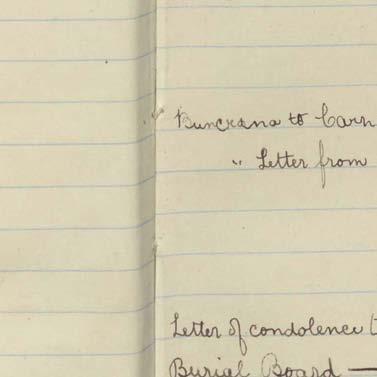 Buncrana to Carn
" Letter from
Letter of condolence t
Burial Board —